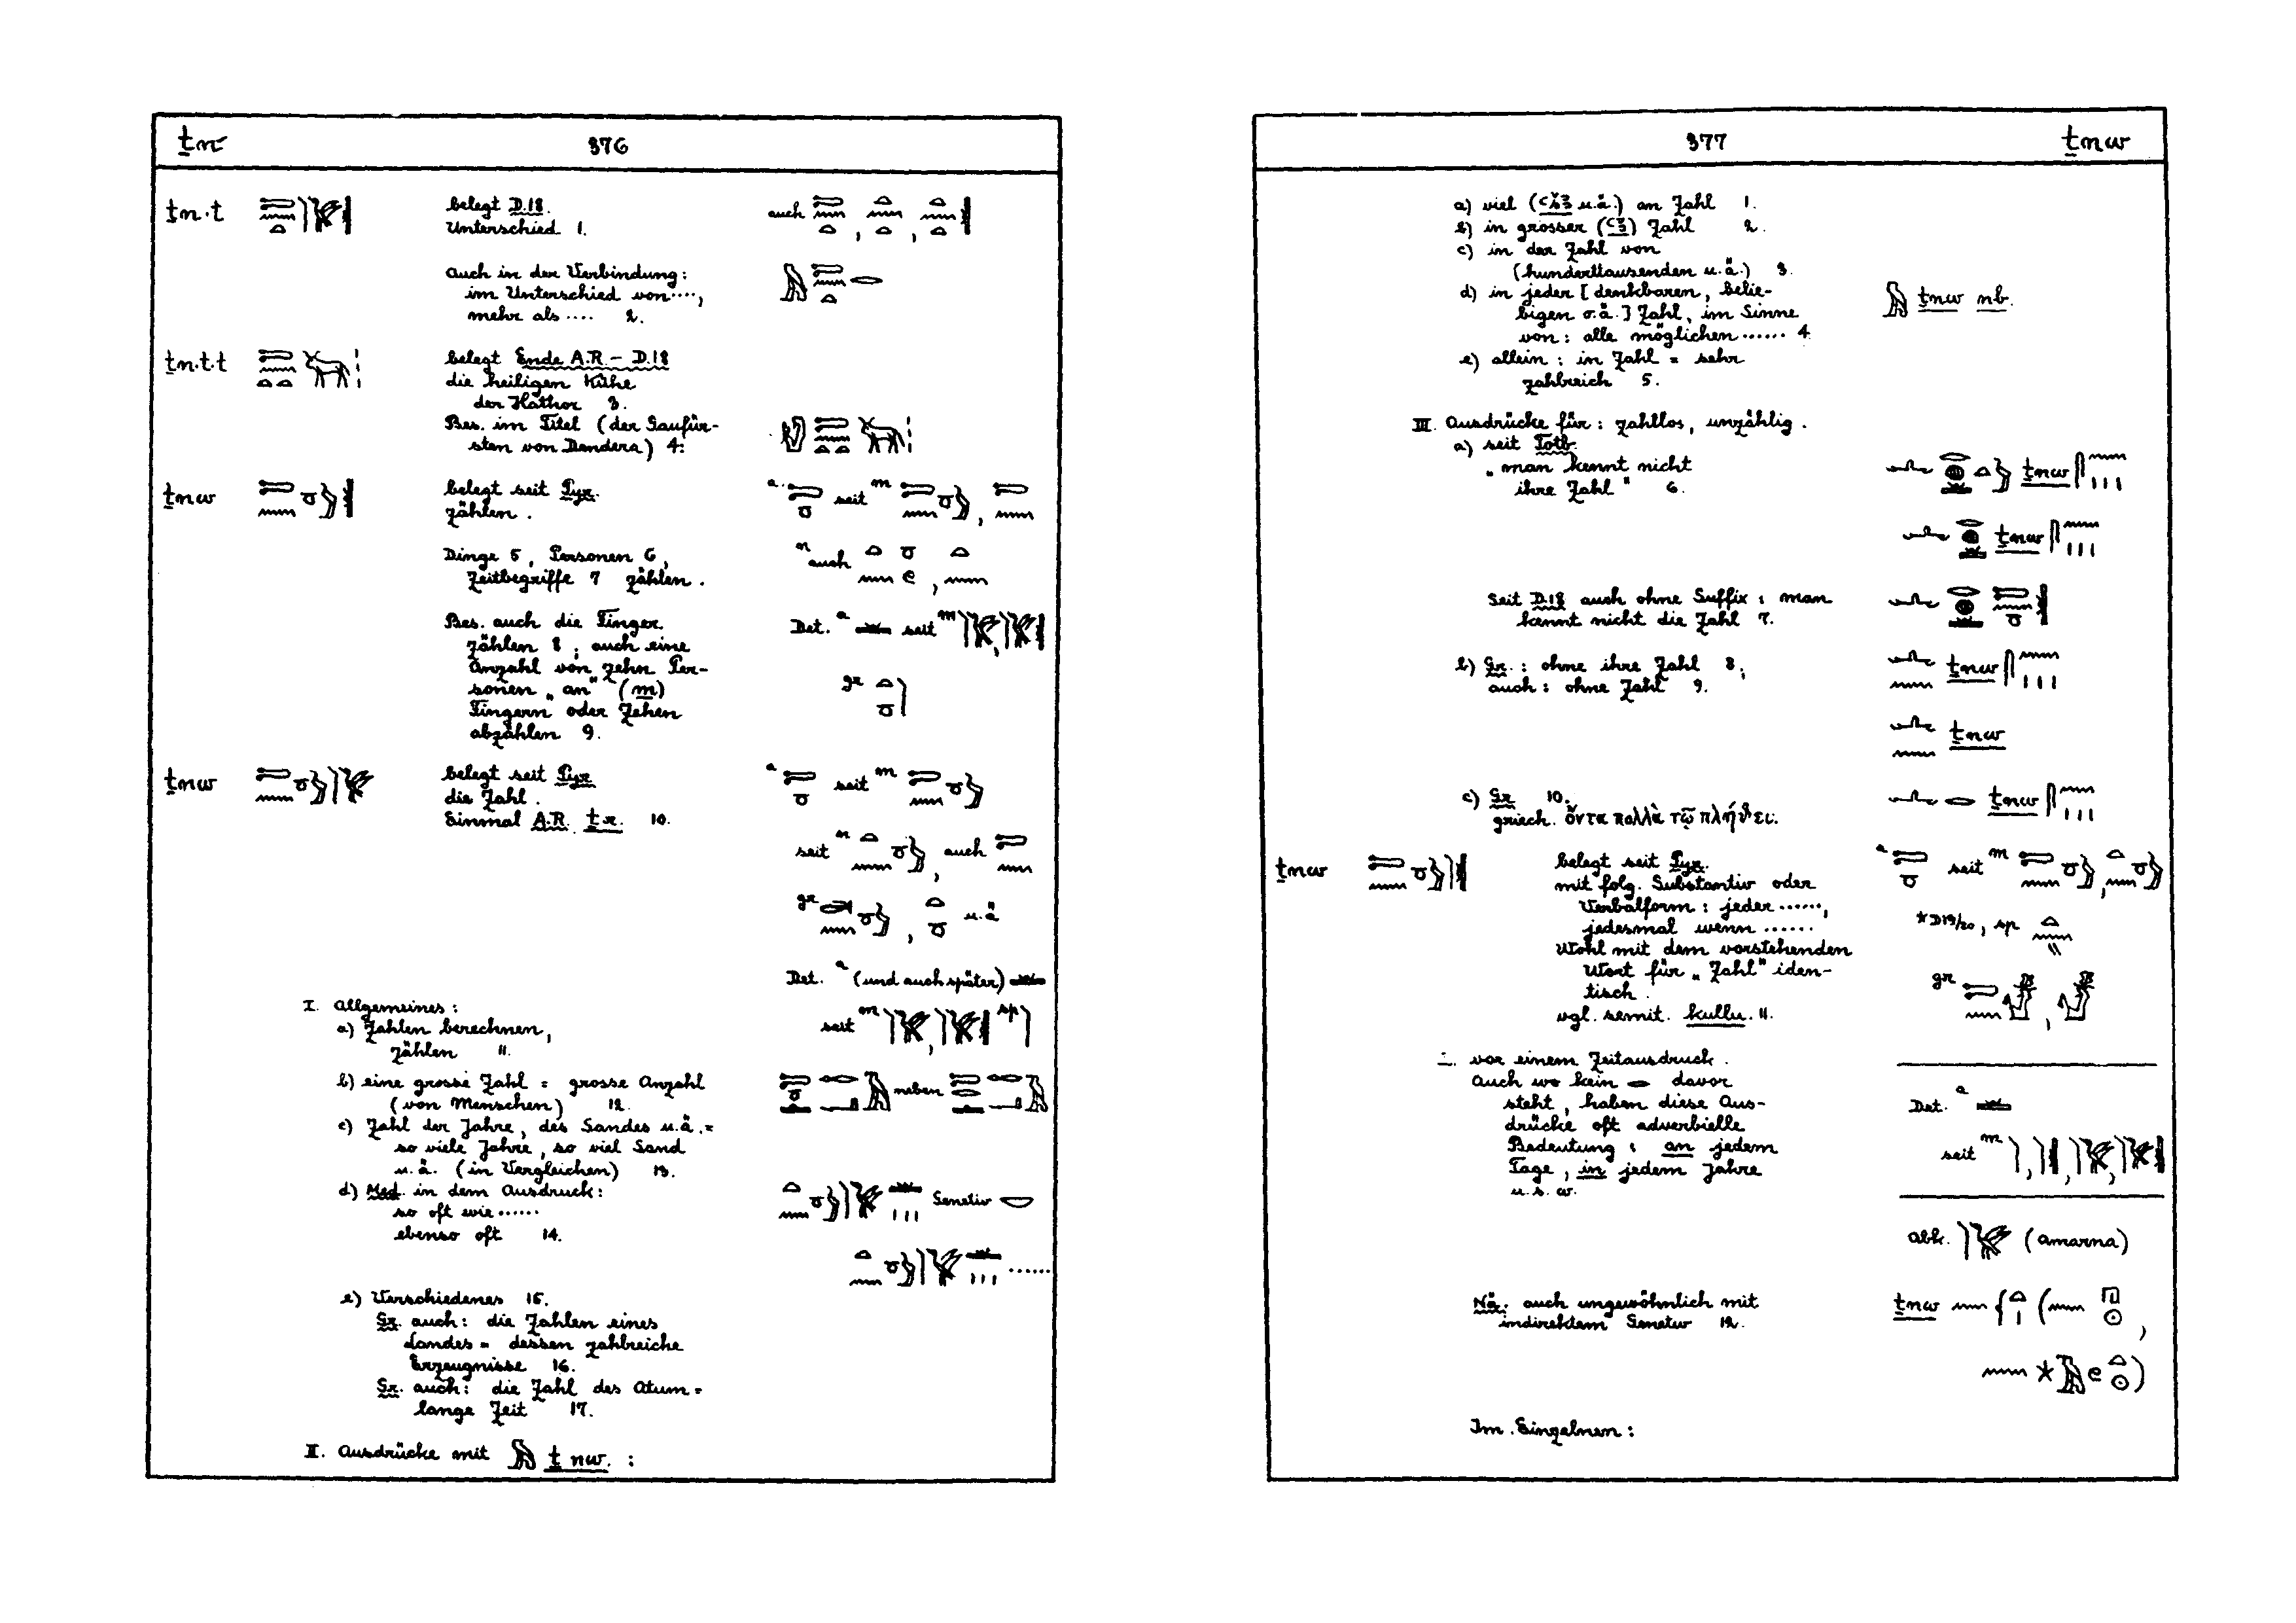 ṯn 376
ṯn·t belegt D.18.
Unterschied 1. auch
Auch in der Verbindung:
im Unterschied von ····,
mehr als ···· 2.
ṯn.t.t belegt Ende A.R. – D.18
die heiligen Kühe
der Hathor 3.
Bes. im Titel (der Gaufür-
sten von Dendera) 4:
ṯnw belegt seit Pyr. a. seit m ,
zählen .
Dinge 5, Personen 6, n auch ,
Zeitbegriffe 7 zählen .
Bes. auch die Finger Det. a seit m ,
zählen 8 ; auch eine
Anzahl von zehn Per-
sonen „an“ (m) gr
Fingern oder Zehen
abzählen 9.
ṯnw belegt seit Pyr. a seit m
die Zahl .
Einmal A.R. ṯr. 10.
seit n , auch
gr , u.ä
Det. a (und auch später)
seit m , sp
I. Allgemeines :
a) Zahlen berechnen,
zählen 11.
b) eine grosse Zahl = grosse Anzahl neben
(von Menschen) 12.
c) Zahl der Jahre, des Sandes u.ä. =
so viele Jahre, so viel Sand
u.ä. (in Vergleichen) 13.
d) Med. in dem Ausdruck: Genetiv
so oft wie ······
ebenso oft 14. ······
e) Verschiedenes 15.
Gr. auch: die Zahlen eines
Landes = dessen zahlreiche
Erzeugnisse 16.
Gr. auch: die Zahl des Atum =
lange Zeit 17.
II. Ausdrücke mit ṯnw. :
377 ṯnw
a) viel (ꜥšꜣ u.ä.) an Zahl 1.
b) in grosser (ꜥꜣ) Zahl 2.
c) in der Zahl von
(hunderttausenden u.ä.) 3.
d) in jeder [denkbaren, belie- ṯnw nb.
bigen o.ä.] Zahl, im Sinne
von : alle möglichen ······ 4.
e) allein : in Zahl = sehr
zahlreich 5.
III. Ausdrücke für : zahllos, unzählig .
a) seit Totb.
„man kennt nicht ṯnw
ihre Zahl“ 6.
ṯnw
Seit D.18 auch ohne Suffix : man
kennt nicht die Zahl 7.
b) Gr. : ohne ihre Zahl 8; ṯnw
auch : ohne Zahl 9.
ṯnw
c) Gr. 10. ṯnw
griech. ὄντα πολλὰ τῷ πλήθει.
ṯnw belegt seit Pyr. a seit m ,
mit folg. Substantiv oder
Verbalform : jeder ······,
jedesmal wenn ······ *D19/20, sp
Wohl mit dem vorstehenden
Wort für „Zahl“ iden- gr ,
tisch .
vgl. semit. kullu. 11.
I. vor einem Zeitausdruck .
Auch wo kein davor
steht, haben diese Aus- Det. a
drücke oft adverbielle
Bedeutung : an jedem seit m , , ,
Tage, in jedem Jahre
u.s.w.
abk. (Amarna)
Nä. auch ungewöhnlich mit ṯnw
indirektem Genetiv 12.
Im Einzelnen :